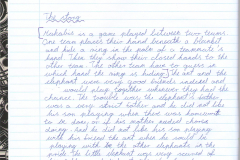 The Game
Kukuluku is a game played between two teams.
One team places their hand beneath a blanket
and hide a ring in the palm of a teammate's
hand. Then they show their closed hands to the
other team. The other team have to guess at
which hand the ring is hiding. The ant and the
elephant were very good friends indeed and
would play together whenever they had the
chance. The trouble was, the elephant's father
was a very strict father and he did not like
his son playing when there was homework
to be done, or if his mother needed chores
doing. had he did not like his son playing
with his friend the ant when he could be
playing with the other elephants in the
pride. The little elephant was very scared of